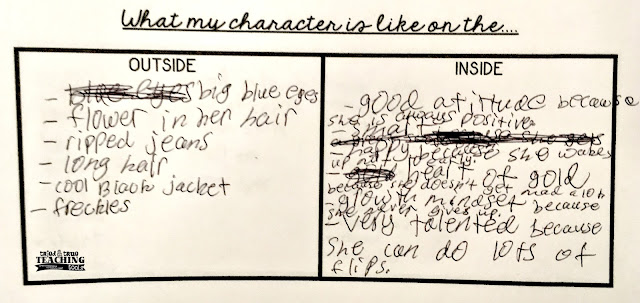 What my character is like on the....
OUTSIDE
- blue eyes big blue eyes
- flower in her hair
- ripped jeans
- long hair
- cool Black jacket
- freckles
tried & true
TEACHING
TOOLS
INSIDE
- good atitude because
she is always positive.
- smart
- happy because she wakes
up not cranky.
- heart of gold
because she doesn't get mad a lot
- growth mindset because
she never gives up.
- very talented because
she can do lots of
flips.